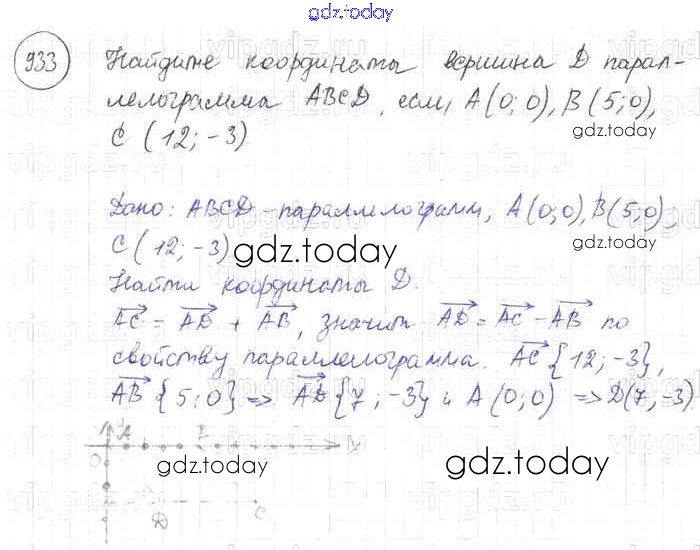 gdz.today
933 Найдите координаты вершина D парал-
лелограмма ABCD, если, A(0;0), B(5;0),
C(12;-3)
gdz.today
Дано: ABCD - параллелограмм, A(0;0), B(5;0),
C(12;-3)
gdz.today
Найти координаты D.
AC = AD + AB, значит AD = AC - AB по
свойству параллелограмма. AC {12;-3},
AB {5;0} => AD {7;-3} и A(0;0) => D(7,-3)
y
A B x
O
gdz.today gdz.today
D C